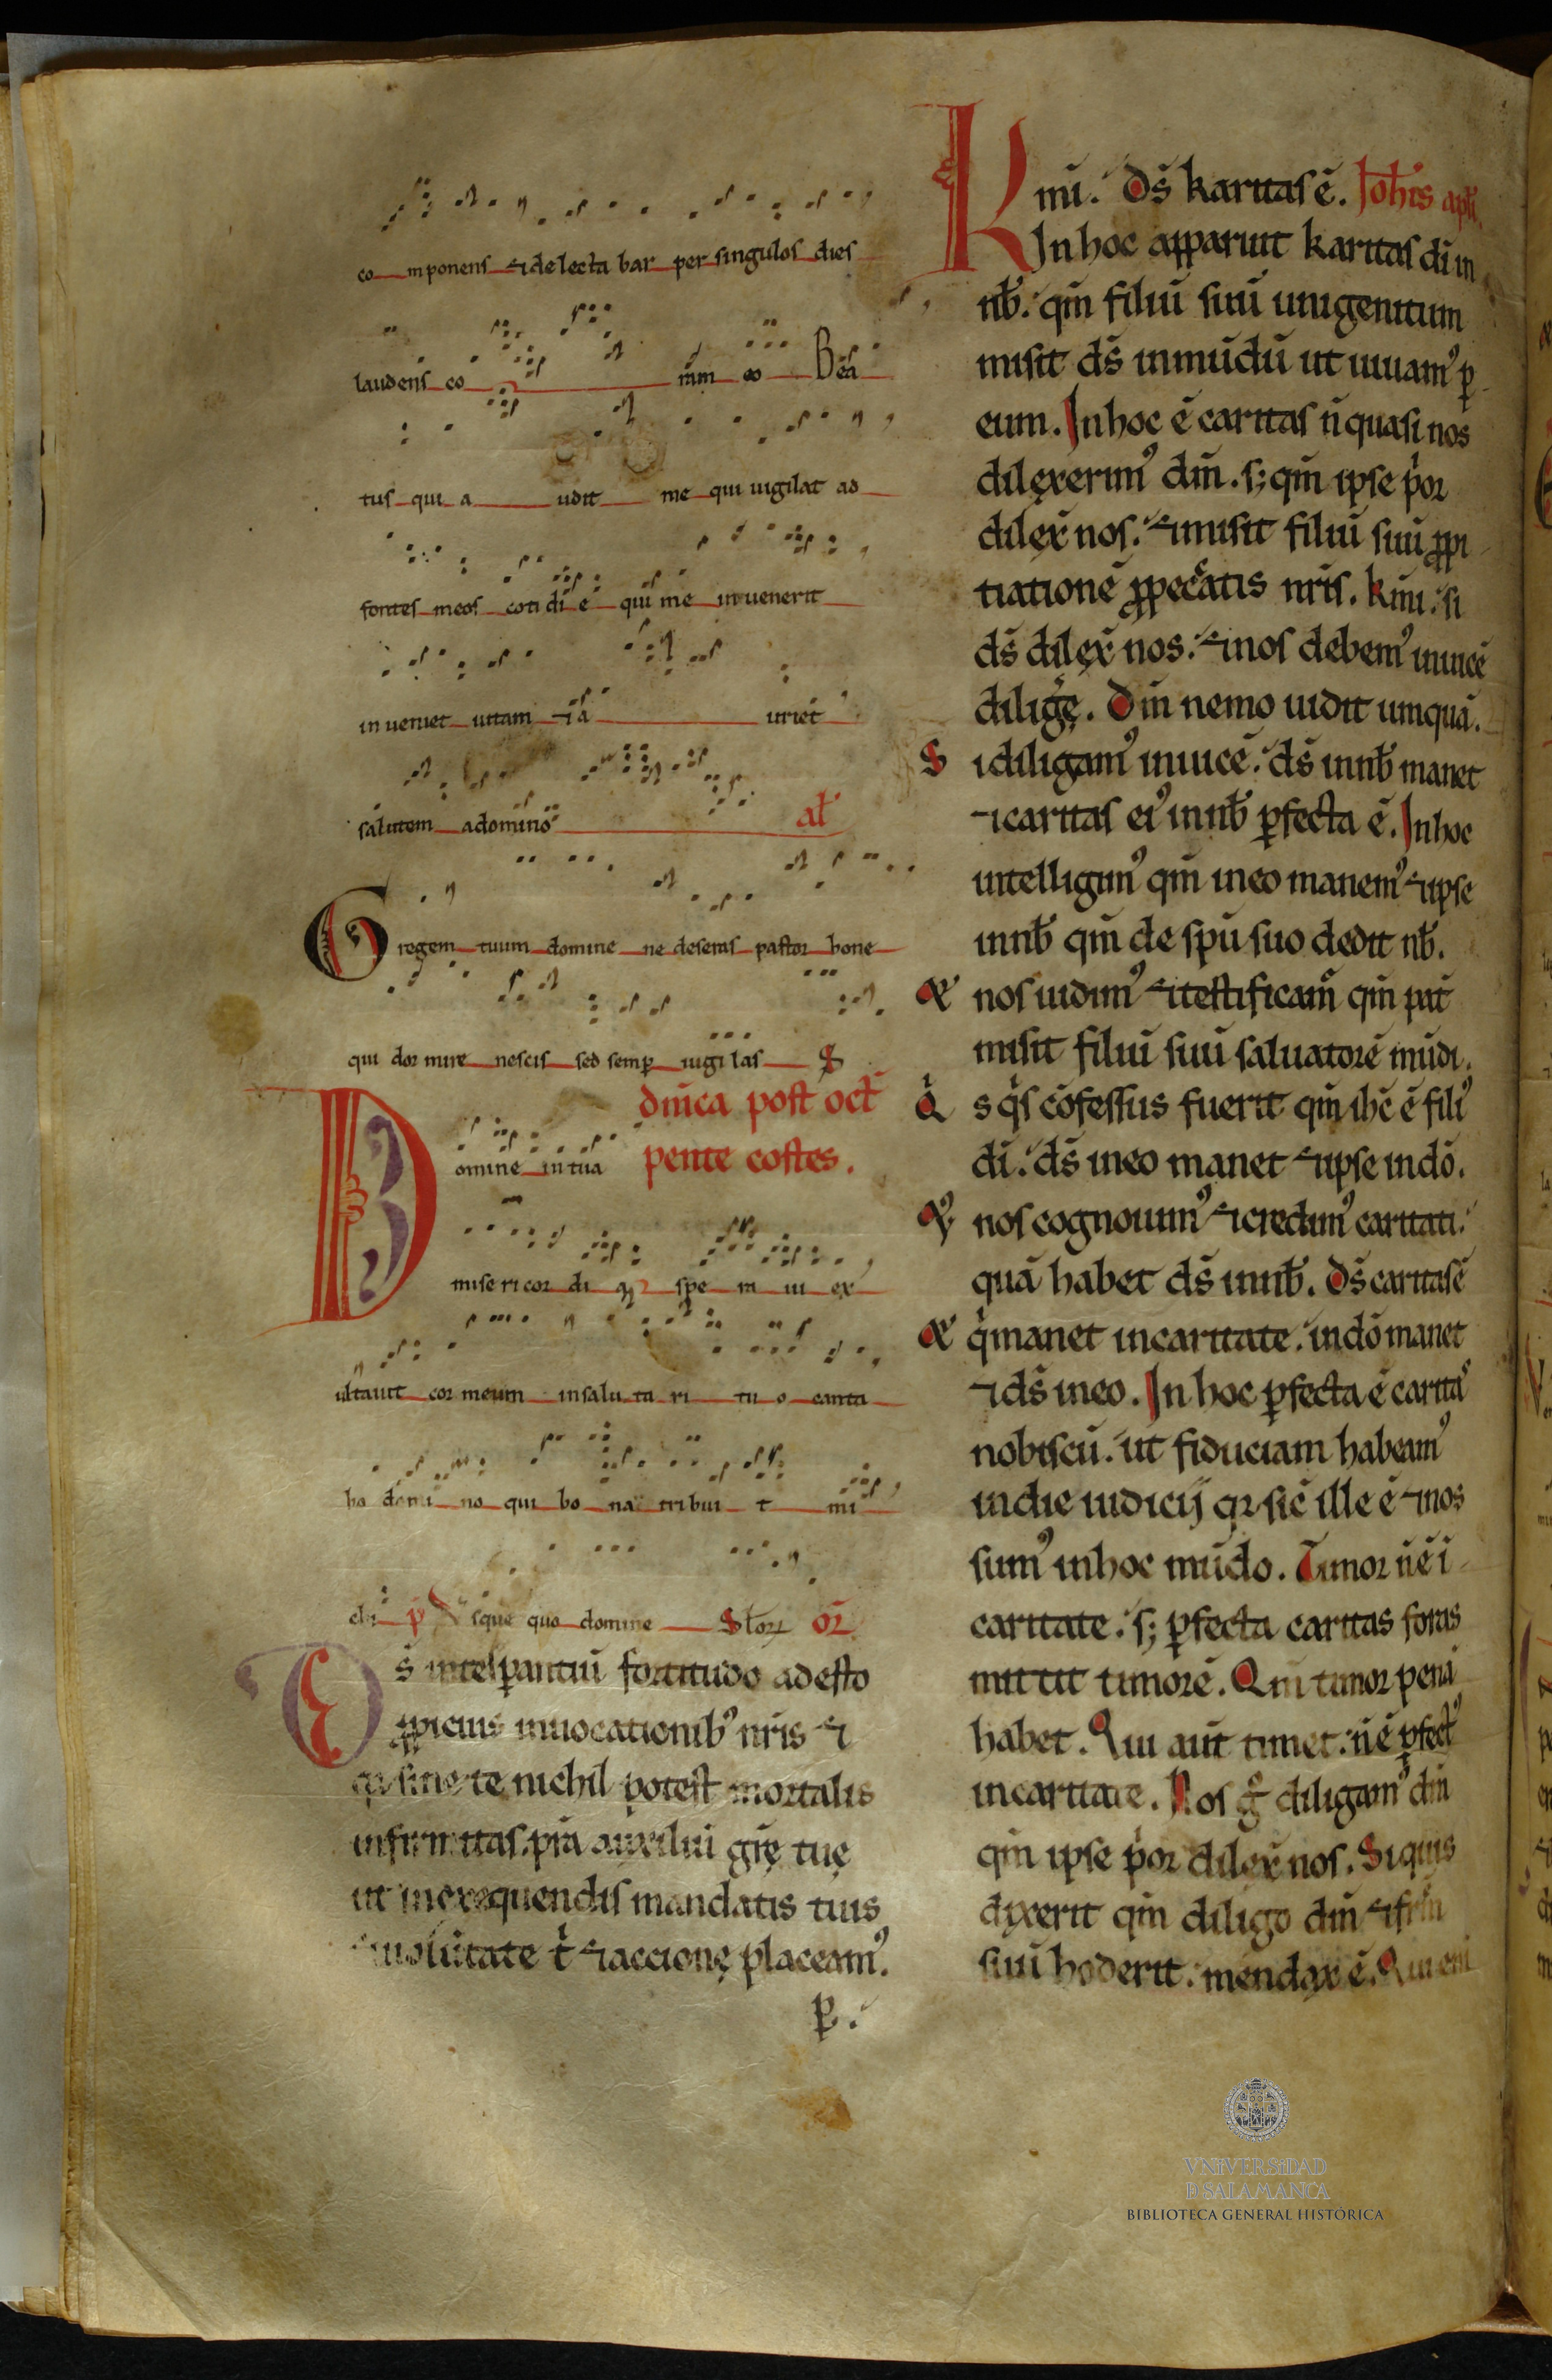 co mponens & delectabar per singulos dies
laudens co ram eo Bea
tus qui a udit me qui uigilat ad
fontes meos cotidie qui me inuenerit
inueniet uitam & a uriet
salutem a domino al̄
Gregem tuum domine ne deseras pastor bone
qui dormire nescis sed semꝑ uigilas S
dn̄ica post oct̄
Domine in tua pente costes.
misericordi a spe ra ui ex
ultauit cor meum in salu ta ri tu o canta
bo domi no qui bo na tribui t mi
chi p̄ Vsque quo domine Stor or̄
Ds̄ in te sperantiū fortitudo adesto
ꝓpicius inuocationib᾽ nr̄is &
qr sine te nichil potest mortalis
infirmitas. pr̄a auxiliū gr̄ę tuę
ut in exequendis mandatis tuis
& uolūtate t & accionę placeam᾽.
p.
Kmī. ds̄ karitas ē. Ioh̄is apl̄i.
In hoc apparuit karitas dī in
nb̄. qm̄ filiū suū unigenitum
misit ds̄ in mūdū ut uiuam᾽ ꝑ
eum. In hoc ē caritas n̄ quasi nos
dilęxerim᾽ dm̄. s; qm̄ ipse p̄or
dilex̄ nos. & misit filiū suū ꝓpi
tiationē ꝓ peccatis nr̄is. Kmī. si
ds̄ dilęx̄ nos. & nos debem᾽ inuicē
diligę̄. Dm̄ nemo uidit umquā.
Si diligam᾽ inuicē. ds̄ in nb̄ manet
& caritas ei᾽ in nb̄ ꝑfecta ē. In hoc
intelligim᾽ qm̄ in eo manem᾽ & ipse
in nb̄ qm̄ de spū suo dedit nb̄.
& nos uidim᾽ & testificam᾽ qm̄ pat̄
misit filiū suū saluatorē mūdi.
Qs qs cōfessus fuerit qm̄ ih̄c ē fili᾽
dī. ds̄ in eo manet & ipse in dō.
& nos cognouim᾽ & credim᾽ caritati.
quā habet ds̄ in nb̄. Ds̄ caritas ē
& q manet in caritate. in dō manet
& ds̄ in eo. In hoc ꝑfecta ē carita᾽
nobiscū. ut fiduciam habeam᾽
in die iudicij qr sic̄ ille ē & nos
sum᾽ in hoc mūdo. Timor n̄ ē ī
caritate. s; ꝑfecta caritas foras
mittit timorē. Qm̄ timor penā
habet. Qui aut̄ timet. n̄ ē ꝑfect᾽
in caritate. Nos g̊ diligam᾽ dm̄
qm̄ ipse p̄or dilex̄ nos. Siquis
dixerit qm̄ diligo dm̄ & fr̄m
suū hoderit. mendax ē. Qui eni
VNiVERSiDAD
D SALAMANCA
BIBLIOTECA GENERAL HISTÓRICA